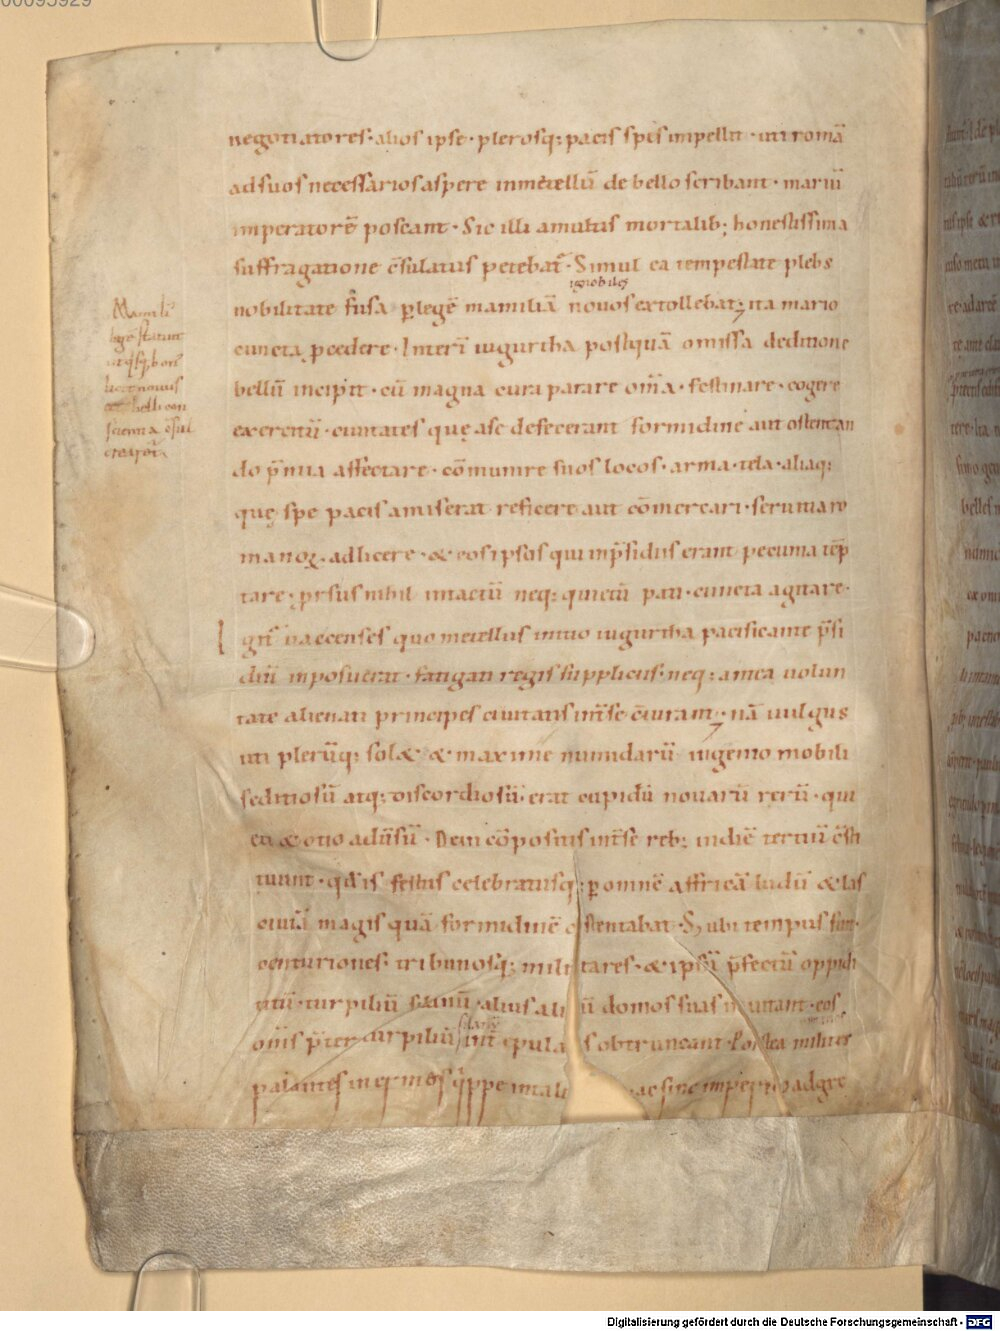 00095929
negotiatores· alios ipse· plerosq; pacis spes impellit· uti romā
ad suos necessarios aspere in metellū de bello scribant· mariū
imperatorē poscant· Sic illi a multis mortalib; honestissima
suffragatione c̄sulatus petebat̄· Simul ea tempestate plebs
ignobiles
nobilitate fusa p legē mamiliā nouos extollebat; ita mario
cuncta pcedere· Interī iugurtha postquā omissa deditione
bellū incipit· cū magna cura parare om̄a· festinare· cogere
exercitū· ciuitates quę a se defecerant formidine aut ostentan
do p̄mia affectare· cōmunire suos locos· arma· tela· aliaq;
quę spe pacis amiserat reficere aut cōmercari· seruitia ro
manoꝝ· adlicere· & eos ipsos qui in p̄sidiis erant pecunia tēp
tare; prsus nihil intactū neq; quietū pati· cuncta agitare·
Igit̄ uaccenses quo metellus initio iugurtha pacificante p̄si
diū inposuerat· fatigati regis suppliciis· neq; antea uolun
tate alienati principes ciuitatis int̄ se c̄iurant; nā uulgus
uti plerūq; sol& & maxime numidarū ingenio mobili
seditiosū atq; discordiosū erat cupidū nouarū rerū· qui
eti & otio aduīsū· Dein cōpositis int̄ se reb; in diē tertiū c̄sti
tuunt· qđ is festus celebratusq; p omnē affricā ludū & las
ciuiā magis quā formidinē ostentabat· S; ubi tempus fuit·
centuriones· tribunosq; militares· & ipsū p̄fectū oppidi
titū· turpiliū silanū· alius aliū domos suas inuitant· eos
silanū
om̄s p̄ter turpiliū int̄ epulas obtruncant· Postea milites
palantes inermos q̄ppe in tali ac sine imperio adgre
Mamili
legē statuit
ut q̄sq; bon
licet nouus
belli con
scientia c̄sul
crearet̄
Digitalisierung gefördert durch die Deutsche Forschungsgemeinschaft - DFG